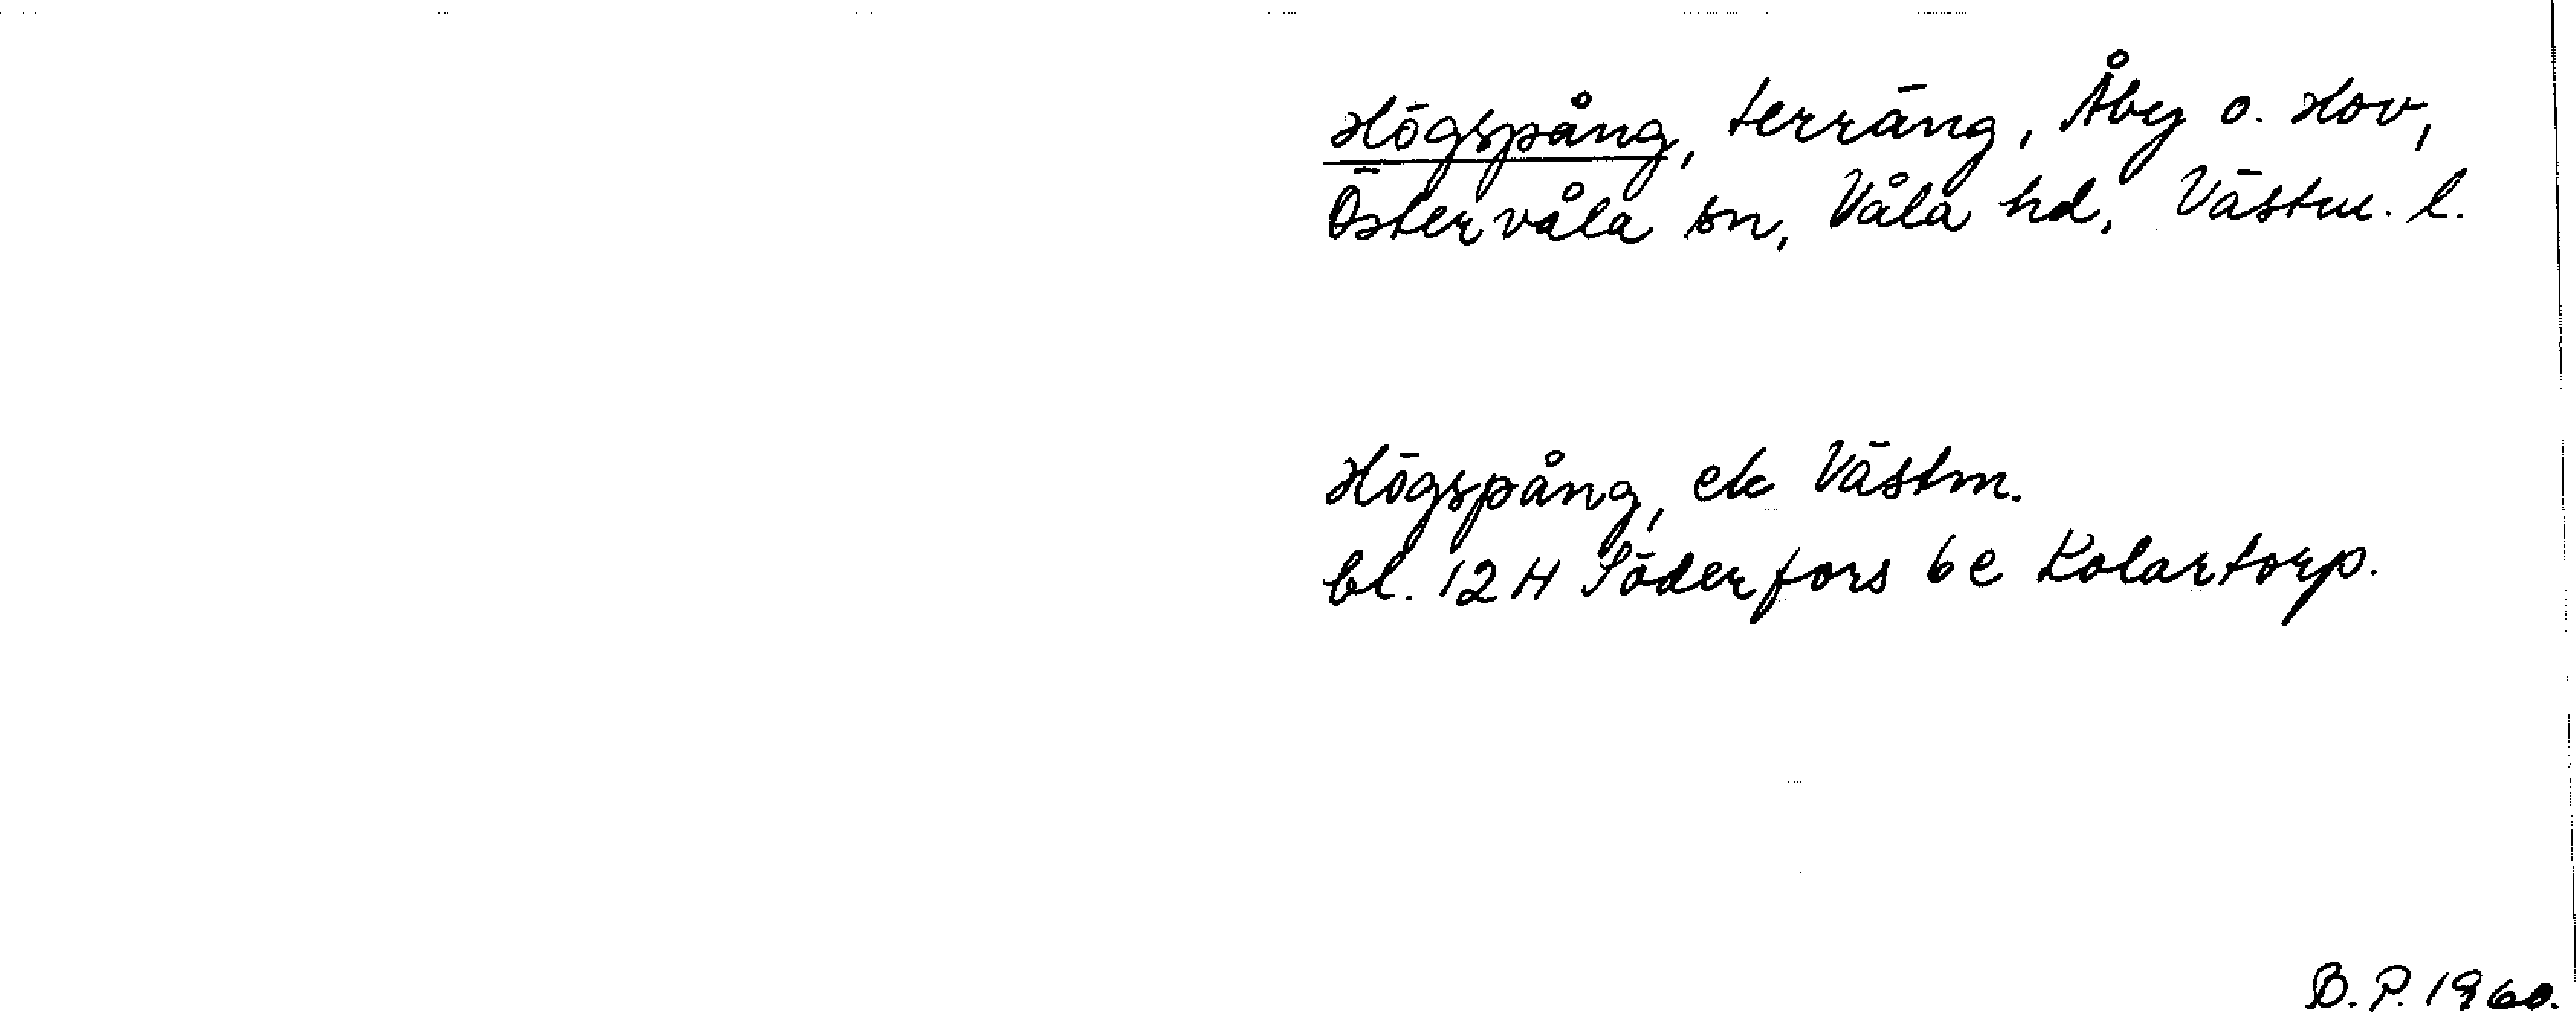 Högspång, terräng, Åby o. Hov,
Östervåla sn, Våla hd, Västm. l.
Högspång, ek Västm.
bl. 12 H Söderfors 6 e Kolartorp.
B. P. 1960.